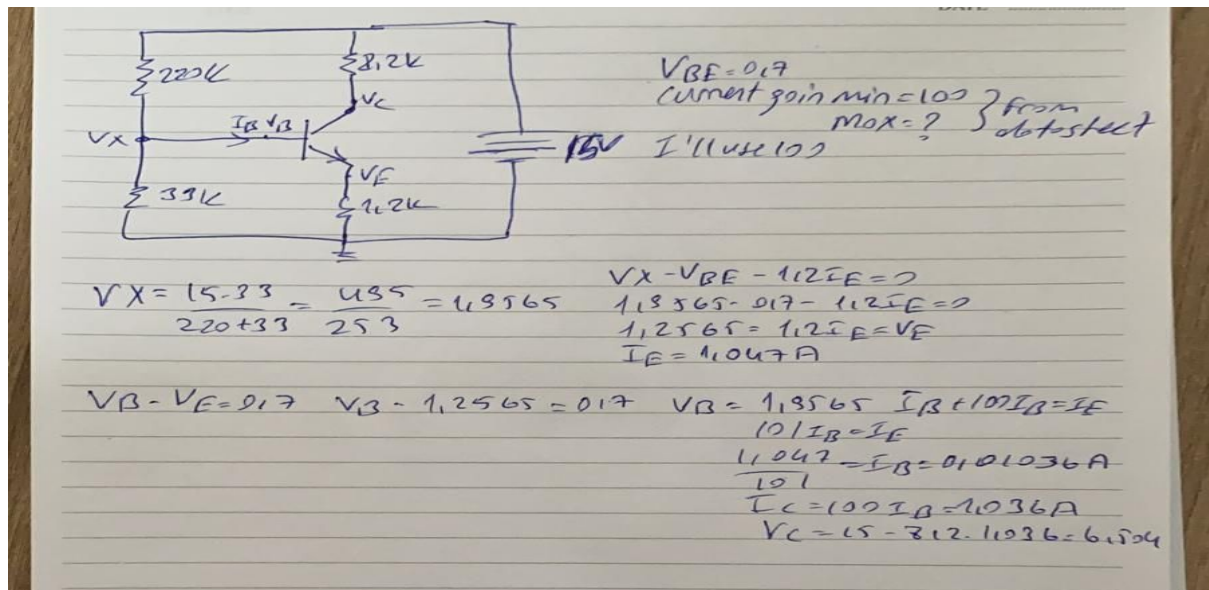 220K
8,2K
VC
IB VB
VX
VE
15V
33K
1,2K
VBE = 0,7
current gain min = 100
max = ?
} from datasheet
I'll use 100
VX = 15.33 / 220+33 = 495 / 253 = 1,9565
VX - VBE - 1,2IE = 0
1,9565 - 0,7 - 1,2IE = 0
1,2565 = 1,2IE = VE
IE = 1,047A
VB - VE = 0,7 VB - 1,2565 = 0,7 VB = 1,9565 IB + 100IB = IE
101IB = IE
1,047 / 101 = IB = 0,01036A
IC = 100IB = 1,036A
VC = 15 - 8,2.1,036 = 6,504